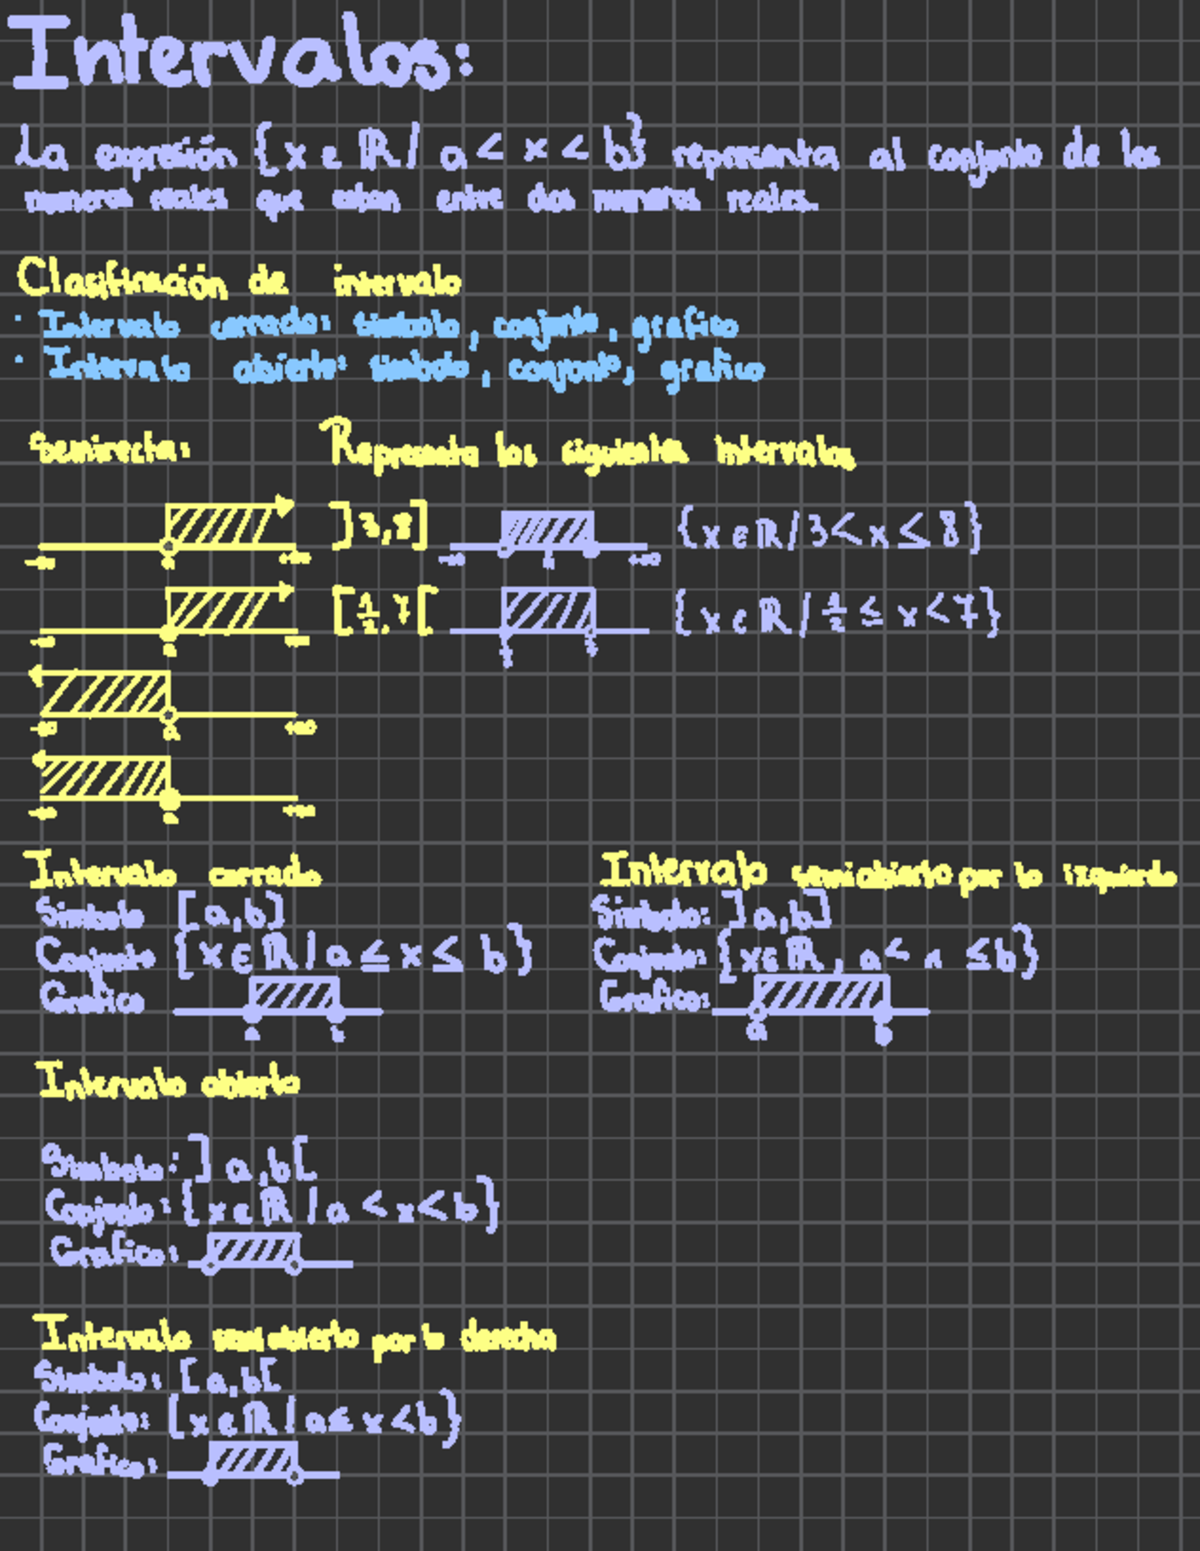 Intervalos:
La expresión {x ∈ ℝ / a < x < b} representa al conjunto de los
numeros reales que estan entre dos numeros reales.
Clasificación de intervalo
· Intervalo cerrado: simbolo, conjunto, grafico
· Intervalo abierto: simbolo, conjunto, grafico
Semirecta: Representa los siguientes intervalos
]3,8] {x ∈ ℝ / 3 < x ≤ 8}
-∞ a +∞ -∞ +∞
[1/2, 7[ {x ∈ ℝ / 1/2 ≤ x < 7}
-∞ a
-∞ a +∞
-∞ a +∞
Intervalo cerrado
Simbolo [a,b]
Conjunto {x ∈ ℝ / a ≤ x ≤ b}
Grafico
a b
Intervalo semiabierto por la izquierda
Simbolo: ]a,b]
Conjunto: {x ∈ ℝ, a < ≤ b}
Grafico:
a b
Intervalo abierto
Simbolo: ]a,b[
Conjunto: {x ∈ ℝ / a < x < b}
Grafico:
Intervalo semiabierto por la derecha
Simbolo: [a,b[
Conjunto: {x ∈ ℝ / a ≤ x < b}
Grafico: